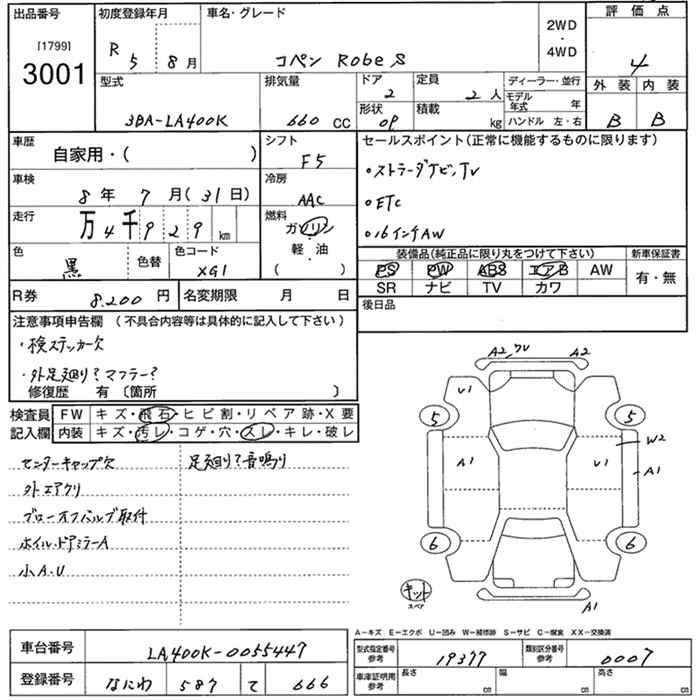 出品番号 初度登録年月 車名・グレード 評価点
[1799] 3001
R 5 8月 コペン Robe S 2WD・4WD 4
型式 排気量 ドア 2 定員 2人 ディーラー・並行 外装 内装
3BA-LA400K 660 CC 形状 OP 積載 kg モデル年式 年 ハンドル 左・右 B B
車歴 自家用・( ) シフト F5 セールスポイント(正常に機能するものに限ります)
・ストラーダナビ、TV
車検 8年 7月(31日) 冷房 AAC
・ETC
走行 万4千929 km 燃料 ガソリン・軽油・( )
・16インチAW
色 黒 色替 色コード XG1
装備品(純正品に限り丸をつけて下さい) 新車保証書
PS PW ABS エアB AW 有・無
SR ナビ TV カワ
R券 8.200円 名変期限 月 日 後日品
注意事項申告欄 (不具合内容等は具体的に記入して下さい)
・検ステッカー欠
・外足廻り?マフラー?
修復歴 有〔箇所 〕
検査員記入欄 FW キズ・飛石・ヒビ割・リペア跡・X要
内装 キズ・汚レ・コゲ・穴・スレ・キレ・破レ
センターキャップ欠 足廻り?音鳴り
外エアクリ
ブローオフバルブ取付
ホイル・ドアミラーA
小A.U
A2 A2
U1
5 5
W2
A1 U1 A1
6 6
キット
スペア
A1
A-キズ E-エクボ U-凹み W-補修跡 S-サビ C-腐食 XX-交換済
車台番号 LA400K-0055447
登録番号 なにわ 587 て 666
型式指定番号 参考 19377 類別区分番号 参考 0007
車庫証明用 参考 長さ cm 幅 cm 高さ cm